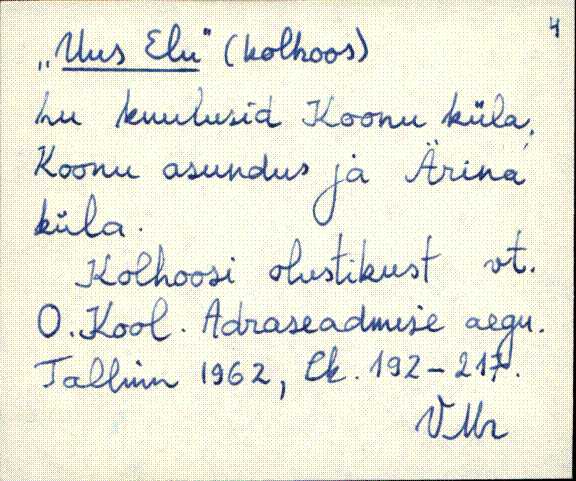 4
„Uus Elu" (kolhoos)
hu kuulusid Koonu küla,
Koonu asundus ja Ärina
küla.
Kolhoosi olustikust vt.
O. Kool. Adraseadmise aegu.
Tallinn 1962, lk. 192–217.
VMr